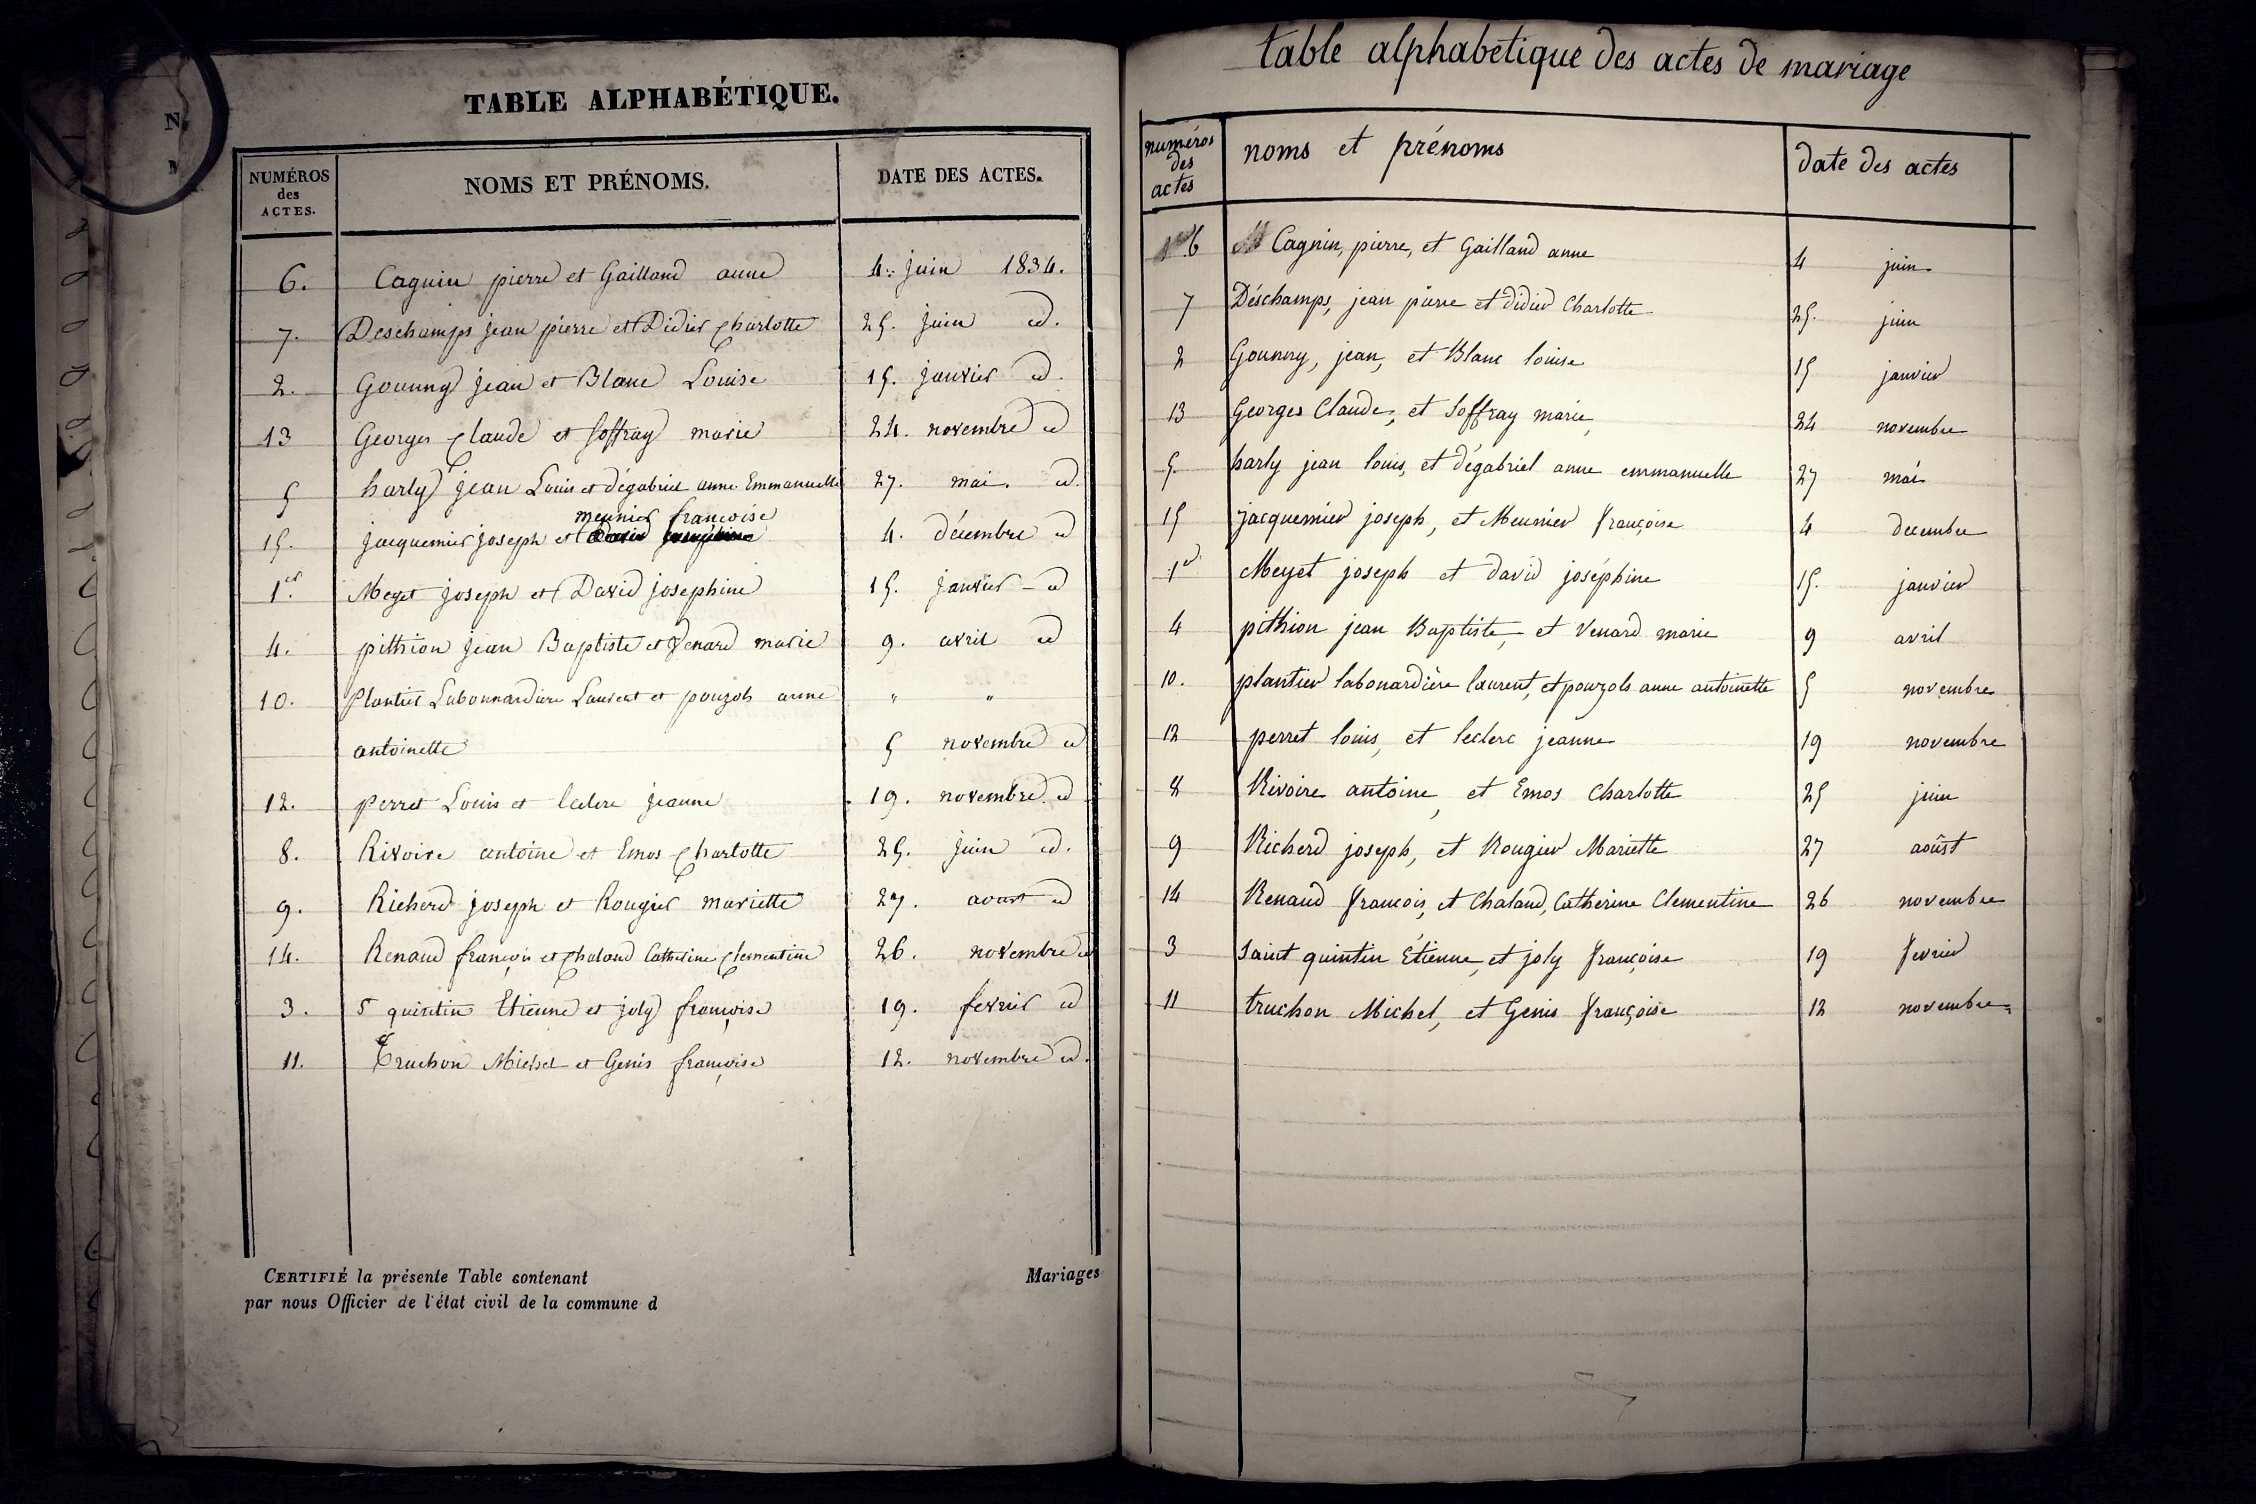 N
TABLE ALPHABÉTIQUE.
NUMÉROS
des
ACTES.
NOMS ET PRÉNOMS.
DATE DES ACTES.
6. Cagnin pierre et Gailland anne 4. juin 1834.
7. Deschamps jean pierre et Didier Charlotte 25. juin id.
2. Gounny jean et Blanc Louise 15. janvier id.
13 Georges Claude et Soffray marie 24. novembre id
5 harly jean Louis et dégabriel anne Emmanuelle 27. mai. id.
meunier francoise
15. jacquemier joseph et 4. décembre id
1er. Meyet joseph et David josephine 15. janvier - id
4. pithion jean Baptiste et Venard marie 9. avril id
10. Plantier Labonnardiere Laurent et pouzols anne " "
antoinette 5 novembre id
12. perret Louis et leclerc jeanne 19. novembre id
8. Rivoire antoine et Emos Charlotte 25. juin id.
9. Richerd joseph et Rougier mariette 27. aoust id
14. Renaud françois et Chaland Catherine Clementine 26. novembre id
3. St quintin Etienne et joly françoise 19. fevrier id
11. Truchon Michel et Genis françoise 12. novembre id.
CERTIFIÉ la présente Table contenant Mariages
par nous Officier de l'état civil de la commune d
table alphabétique des actes de mariage
numéros
des
actes
noms et prénoms
date des actes
6 Cagnin, pierre, et Gailland anne 4 juin
7 Déschamps, jean pierre et didier Charlotte 25. juin
2 Gounny, jean, et Blanc louise 15 janvier
13 Georges Claude, et Soffray marie, 24 novembre
5. harly jean louis, et dégabriel anne emmanuelle 27 mai
15 jacquemier joseph, et Meunier françoise 4 decembre
1er Meyet joseph et david joséphine 15. janvier
4 pithion jean Baptiste, et Venard marie 9 avril
10. plantier labonardière laurent, et pouzols anne antoinette 5 novembre
12 perret louis, et leclerc jeanne 19 novembre
8 Rivoire antoine, et Emos Charlotte 25 juin
9 Richerd joseph, et Rougier Mariette 27 août
14 Renaud francois, et Chaland, Catherine Clementine 26 novembre
3 Saint quintin Étienne, et joly françoise 19 fevrier
11 truchon Michel, et Genis françoise 12 novembre